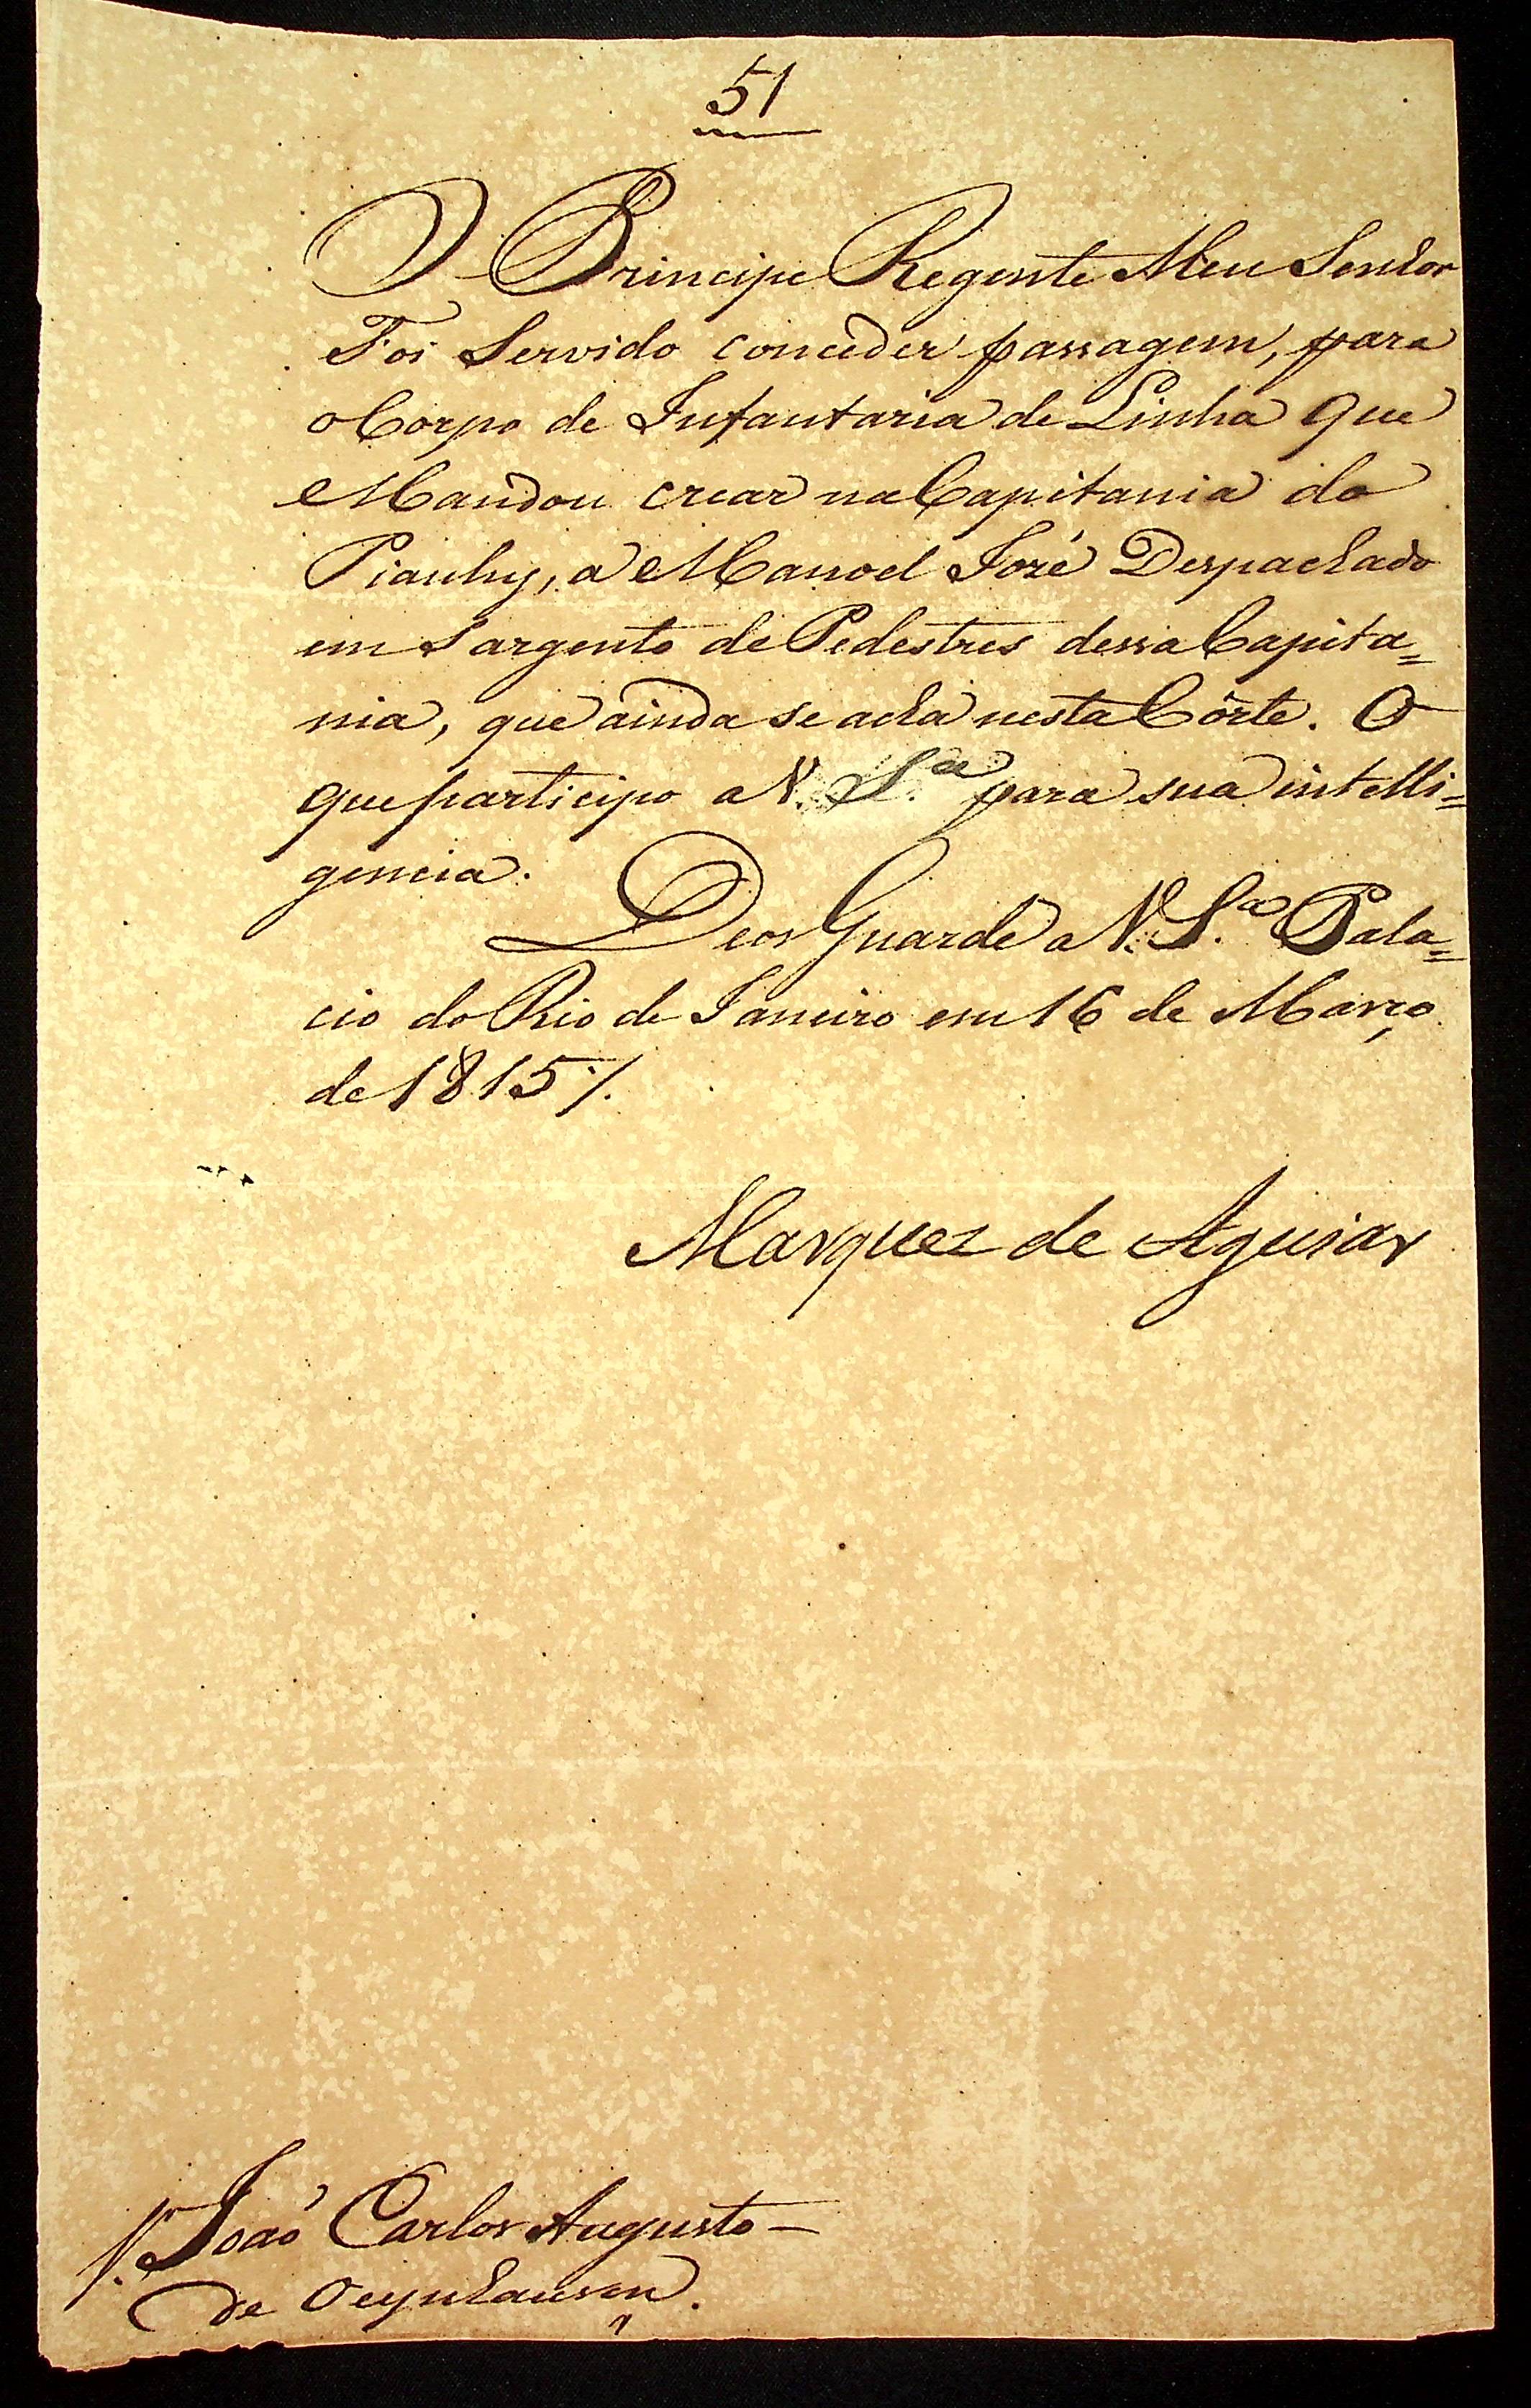 51
O Principe Regente Meu Senhor
Foi Servido conceder passagem, para
o Corpo de Infantaria de Linha que
Mandou crear na Capitania do
Piauhy, a Manoel José Despachado
em Sargento de Pedestres dessa Capita=
nia, que ainda se acha nesta Côrte. O
que participo a V. S.ª para sua intelli=
gencia.
Deos Guarde a V. S.ª Pala=
cio do Rio de Janeiro em 16 de Março
de 1815 ./.
Marquez de Aguiar
S.r João Carlos Augusto
de Oeynhausen.